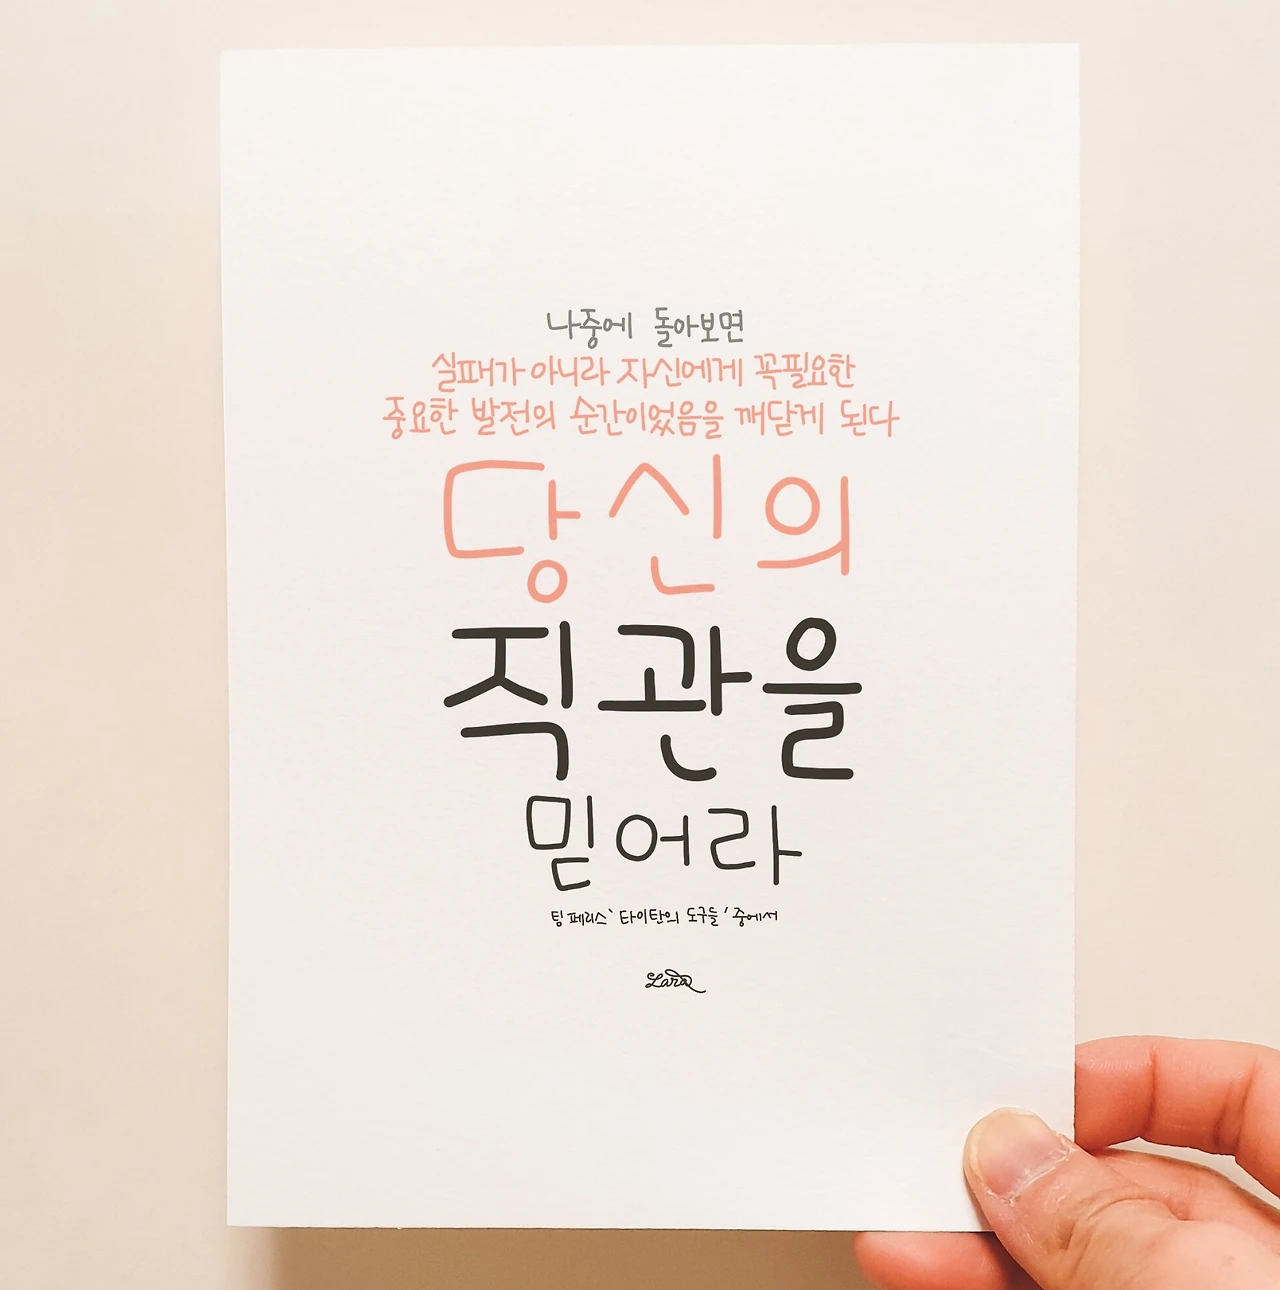 나중에 돌아보면
실패가 아니라 자신에게 꼭필요한
중요한 발전의 순간이었음을 깨닫게 된다
당신의
직관을
믿어라
팀 페리스 '타이탄의 도구들' 중에서
Lara